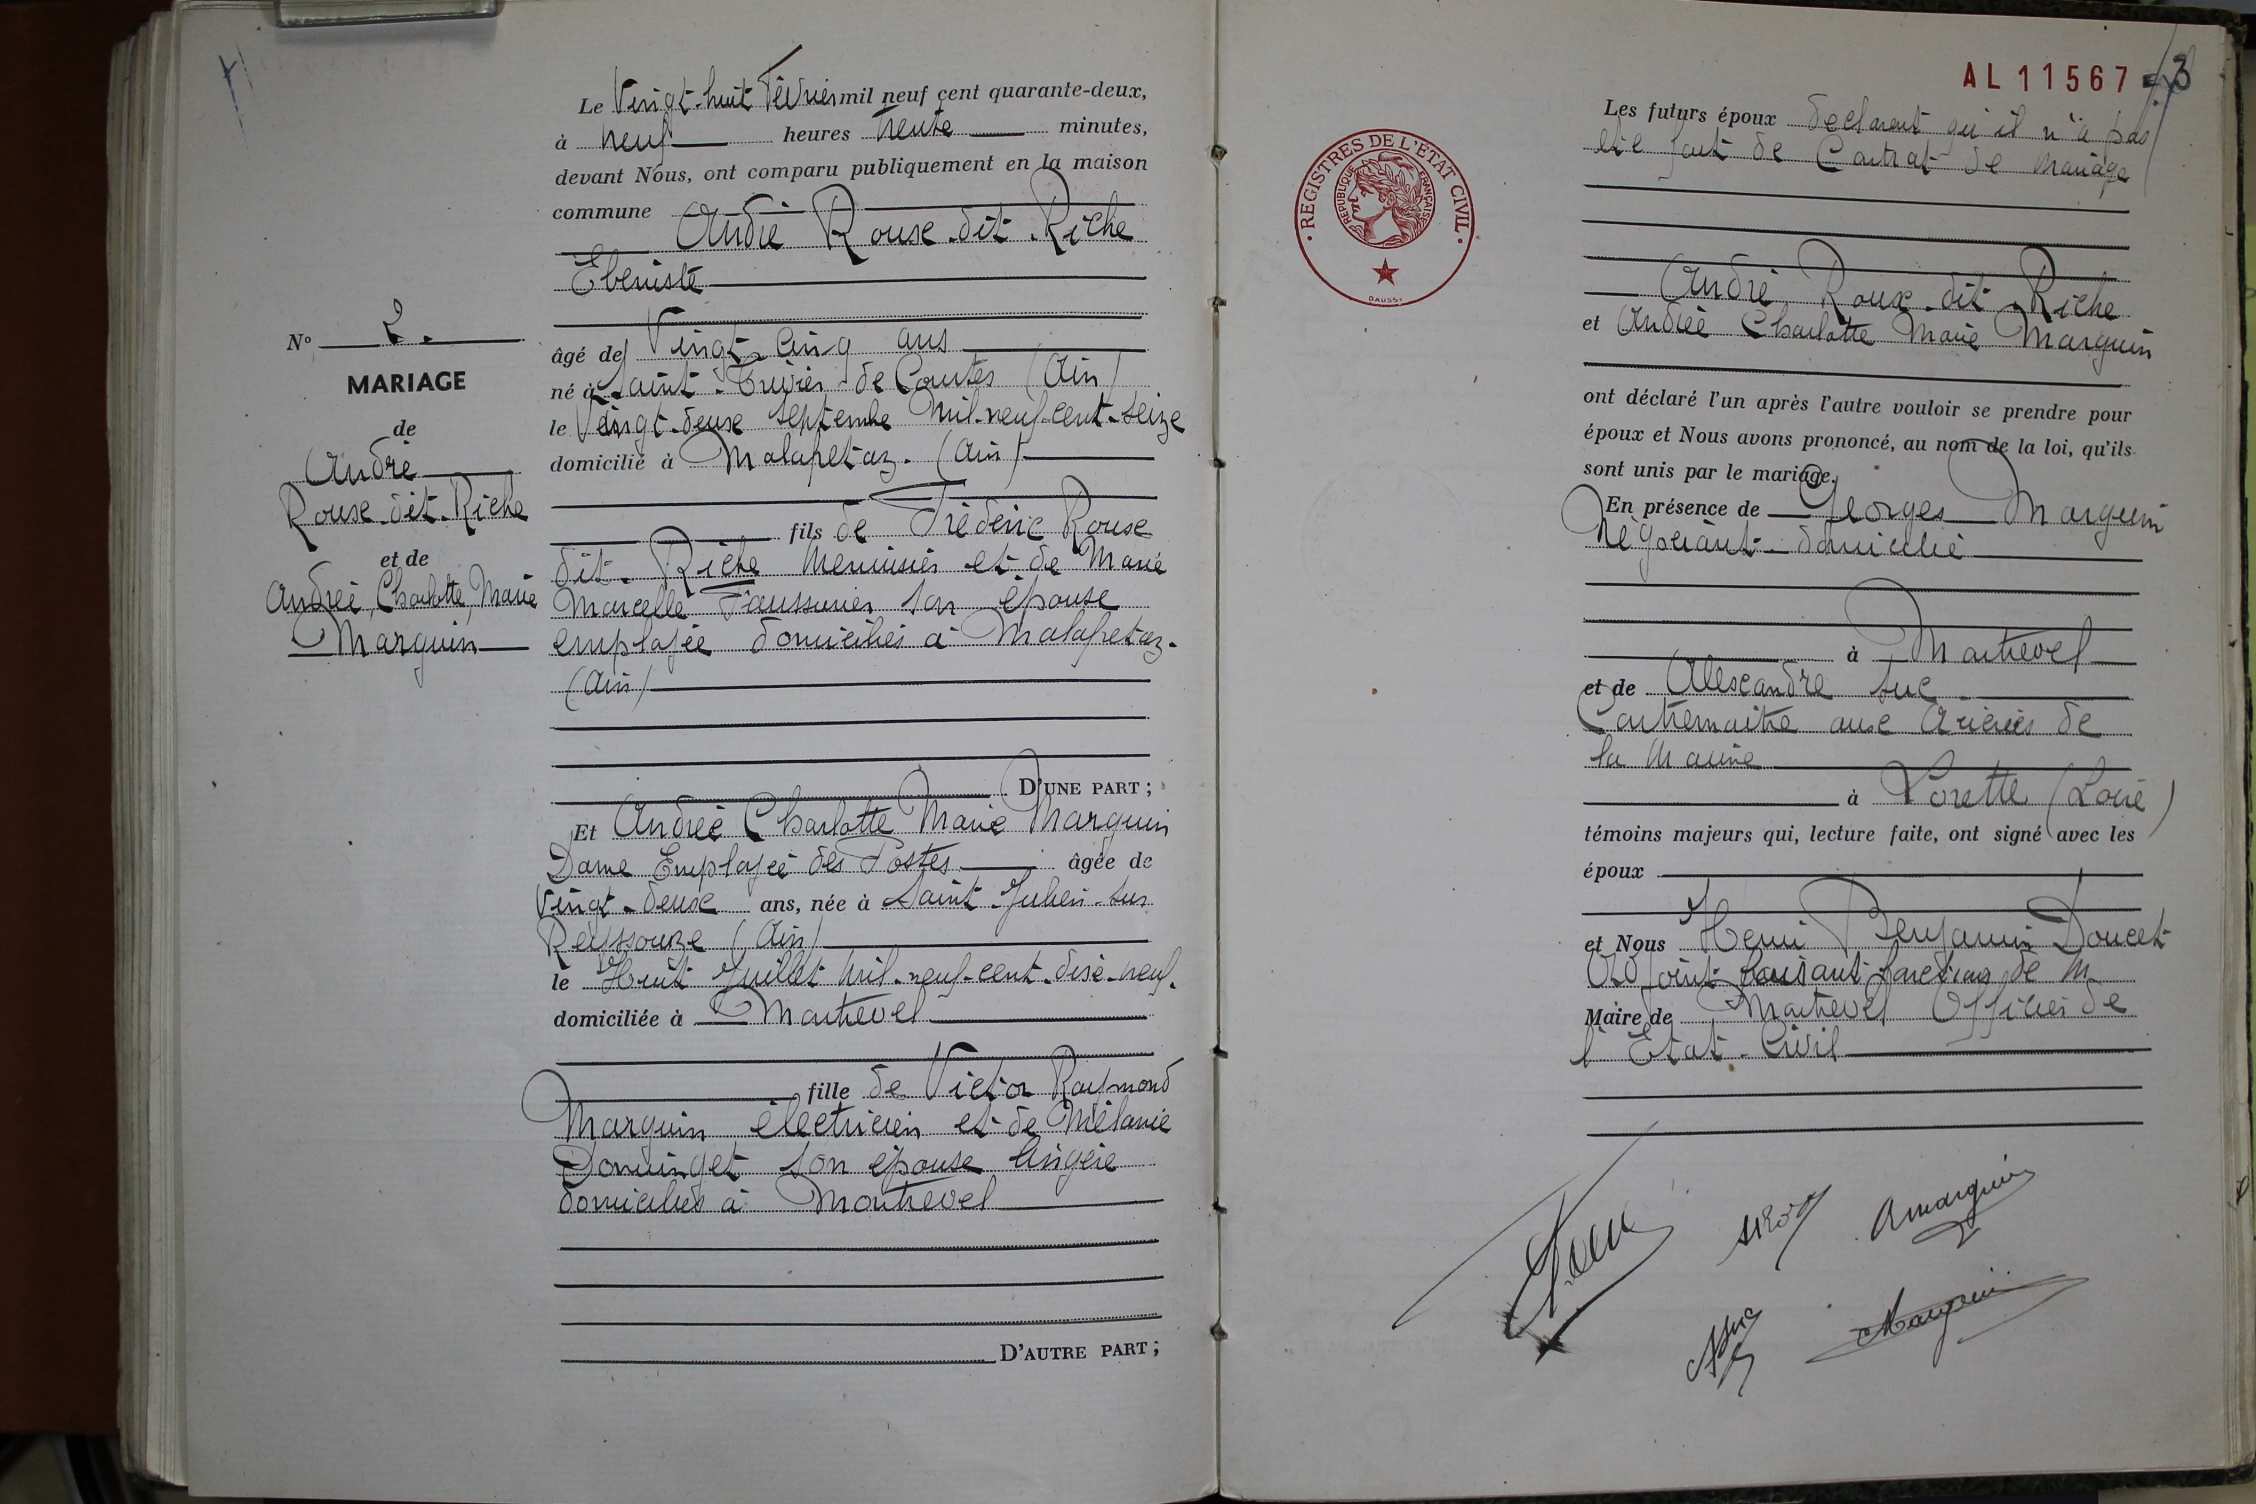 Le Vingt-huit Février mil neuf cent quarante-deux,
à neuf heures trente minutes,
devant Nous, ont comparu publiquement en la maison
commune
André Roux-dit-Riche
Ebéniste
âgé de Vingt cinq ans
né à Saint-Trivier-de Courtes (Ain)
le Vingt-deux septembre mil-neuf-cent-seize
domicilié à Malafretaz. (Ain)
fils de Frédéric Roux
dit-Riche menuisier et de Marie
Marcelle son épouse
employée domiciliés à Malafretaz.
(Ain)
D'UNE PART ;
Et Andrée Charlotte Marie Marguin
Dame Employée des Postes âgée de
Vingt-deux ans, née à Saint-Julien-sur
Reyssouze (Ain)
le Huit Juillet mil-neuf-cent-dix-neuf.
domiciliée à Montrevel
fille de Victor Raymond
Marguin électricien et de Mélanie
Dominget son épouse lingère
domiciliés à Montrevel
D'AUTRE PART ;
N° 2.
MARIAGE
de
André
Roux-dit-Riche
et de
Andrée, Charlotte, Marie
Marguin
AL 11567 3
REGISTRES DE L'ETAT CIVIL
REPUBLIQUE FRANÇAISE
DAUSSY
Les futurs époux déclarent qu'il n'a pas
été fait de Contrat de mariage
André Roux-dit-Riche
et Andrée Charlotte Marie Marguin
ont déclaré l'un après l'autre vouloir se prendre pour
époux et Nous avons prononcé, au nom de la loi, qu'ils
sont unis par le mariage.
En présence de Georges Marguin
Négociant domicilié
à Montrevel
et de Alexandre Suc
Contremaitre aux Aciéries de
la Marine
à Lorette (Loire)
témoins majeurs qui, lecture faite, ont signé avec les
époux
et Nous Henri Benjamin Doucet
Adjoint faisant fonctions de M
Maire de Montrevel Officier de
l'Etat-Civil
AMarguin
ASuc
Marguin